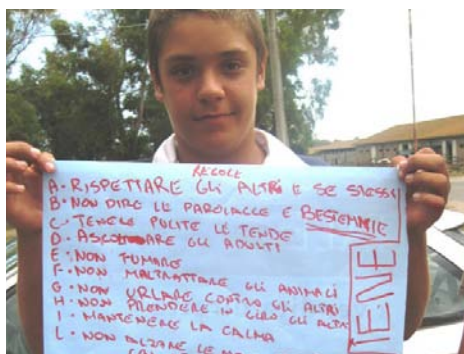 REGOLE
A. RISPETTARE GLI ALTRI E SE STESSI
B. NON DIRE LE PAROLACCE E BESTEMMIE
C. TENERE PULITE LE TENDE
D. ASCOLTARE GLI ADULTI
E. NON FUMARE
F. NON MALTRATTARE GLI ANIMALI
G. NON URLARE CONTRO GLI ALTRI
H. NON PRENDERE IN GIRO GLI ALTRI
I. MANTENERE LA CALMA
L. NON ALZARE LE
IENE